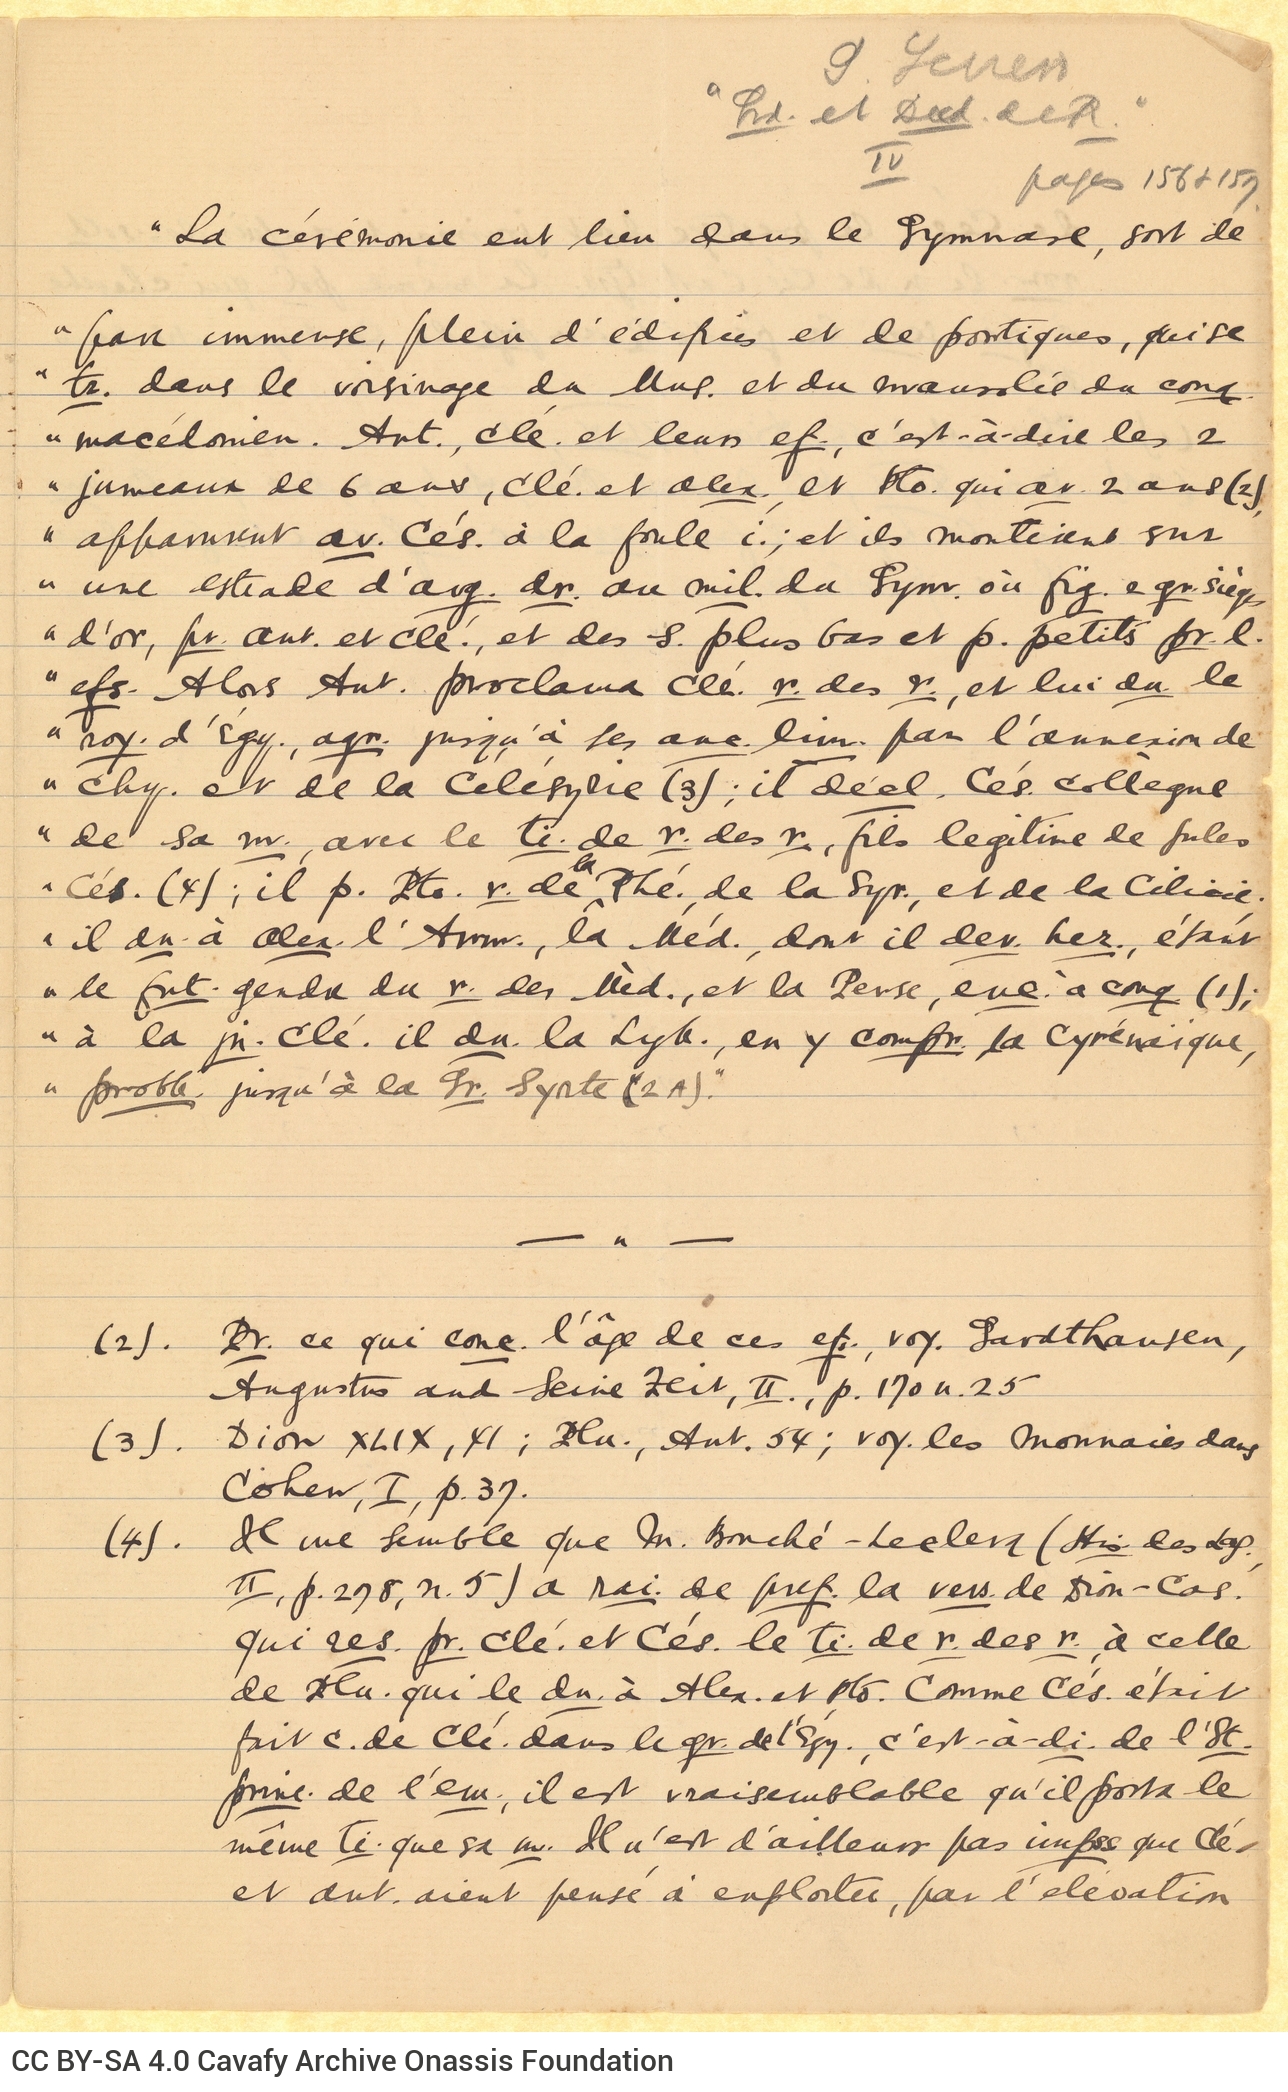 G. Ferrero
"Grd. et Déd. de R."
IV
pages 156 & 157
"La cérémonie eut lieu dans le Gymnase, sort de
"parc immense, plein d'édifices et de portiques, qui se
"tr. dans le voisinage du Mus. et du mausolée du conq.
"macédonien. Ant., Clé. et leurs ef., c'est-à-dire les 2
"jumeaux de 6 ans, Clé. et Alex., et Pto. qui av. 2 ans (2),
"apparurent av. Cés. à la foule i.; et ils montèrent sur
"une estrade d'arg. dr. au mil. du Gymn. où fig. 2 gr. sièges
"d'or, pr. Ant. et Clé., et des s. plus bas et p. petits pr. l.
"efs. Alors Ant. proclama Clé. r. des r., et lui dn. le
"roy. d'Égy., agr. jusqu'à ses anc. lim. par l'annexion de
"Chy. et de la Célésyrie (3); il décl. Cés. collègue
"de sa m., avec le ti. de r. des r., fils legitime de Jules
"Cés. (4); il p. Pto. r. de la Phé., de la Syr., et de la Cilicie.
"il dn. à Alex. l'Arm., la Méd., dont il dev. her., étant
"le fut. gendre du r. des Mèd., et la Perse, enc. à conq (1);
"à la jn. Clé. il dn. la Lyb., en y compr. la Cyrénaïque,
"probb. jusqu'à la Gr. Syrte (2A)."
— " —
(2). Pr. ce qui conc. l'âge de ces ef., voy. Gardthausen,
Augustus und Seine Zeit, II., p. 170 n. 25
(3). Dion XLIX, 41; Plu., Ant. 54; voy. les monnaies dans
Cohen, I, p. 37.
(4). Il me semble que M. Bouché-Leclerq (His. des Lag.,
II, p. 278, n. 5) a rai. de préf. la vers. de Dion-Cas.
qui res. pr. Clé. et Cés. le ti. de r. des r., à celle
de Plu. qui le dn. à Alex. et Pto. Comme Cés. était
fait c. de Clé. dans le gr. de l'Égy., c'est-à-di. de l'St.
princ. de l'em., il est vraisemblable qu'il porta le
même ti. que sa m. Il n'est d'ailleurs pas imposs que Clé.
et Ant. aient pensé à exploiter, par l'elévation
CC BY-SA 4.0 Cavafy Archive Onassis Foundation